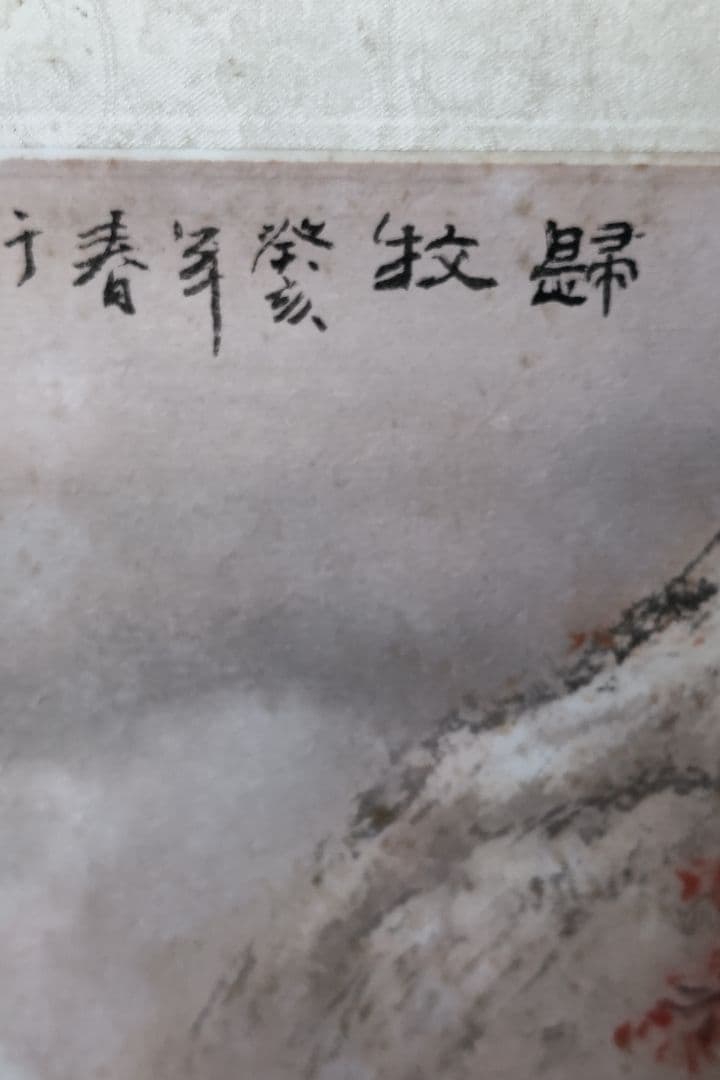 歸牧 癸亥年春于